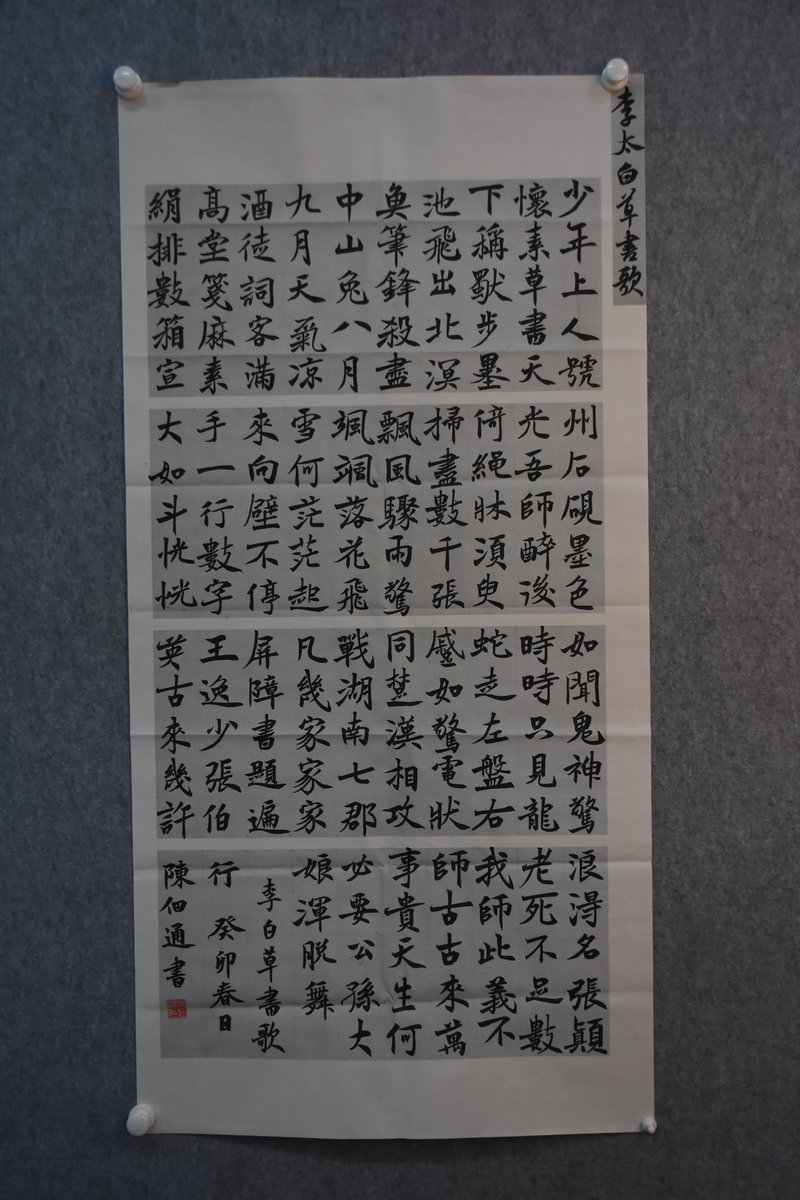 李太白草書歌
少年上人號
懷素草書天
下稱獨步墨
池飛出北溟
魚筆鋒殺盡
中山兔八月
九月天氣凉
酒徒詞客滿
高堂箋麻素
絹排數箱宣
州石硯墨色
光吾師醉後
倚繩牀須臾
掃盡數千張
飄風驟雨驚
颯颯落花飛
雪何茫茫起
來向壁不停
手一行數字
大如斗恍恍
如聞鬼神驚
時時只見龍
蛇走左盤右
蹙如驚電狀
同楚漢相攻
戰湖南七郡
凡幾家家家
屏障書題遍
王逸少張伯
英古來幾許
浪得名張顛
老死不足數
我師此義不
師古古來萬
事貴天生何
必要公孫大
娘渾脫舞
李白草書歌
行 癸卯春日
陳佃通書